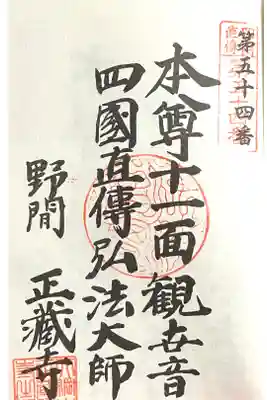 第五十四番
本尊十一面観世音
四國直傳弘法大師
野間 正藏寺